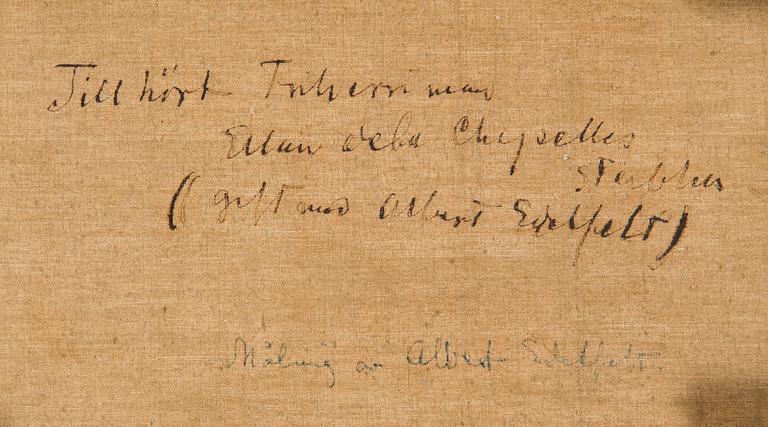 Tillhört Friherrinnan
Ellan de la Chapelles
Sterbhus
(gift med Albert Edelfelt)
Målning av Albert Edelfelt.